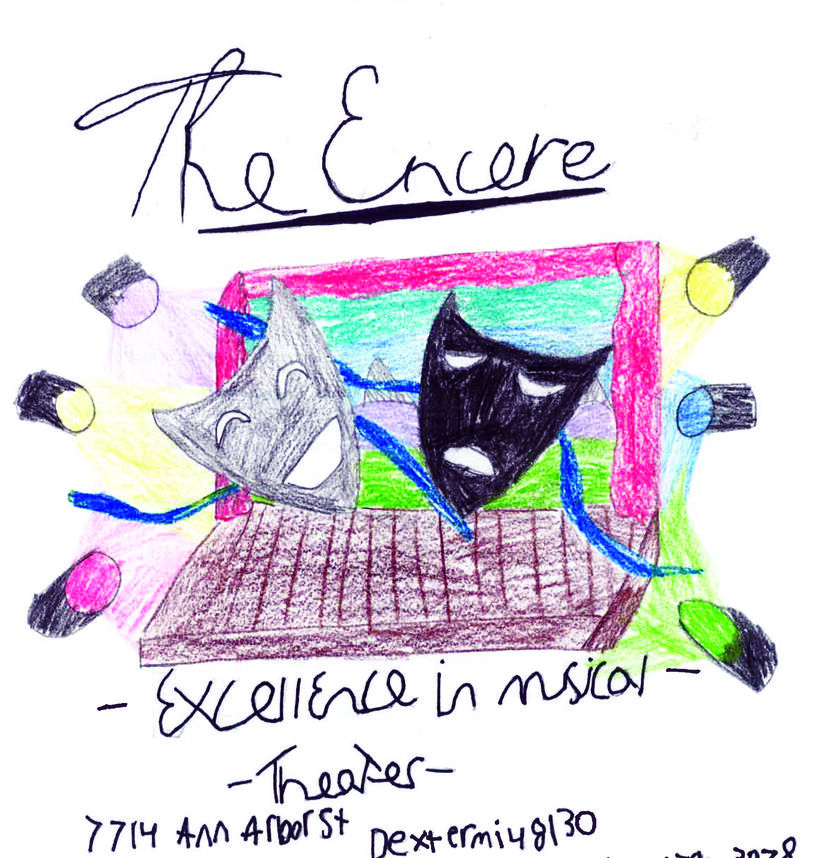 The Encore
- Excellence in musical -
- Theater -
7714 Ann Arbor St
Dexter mi 48130